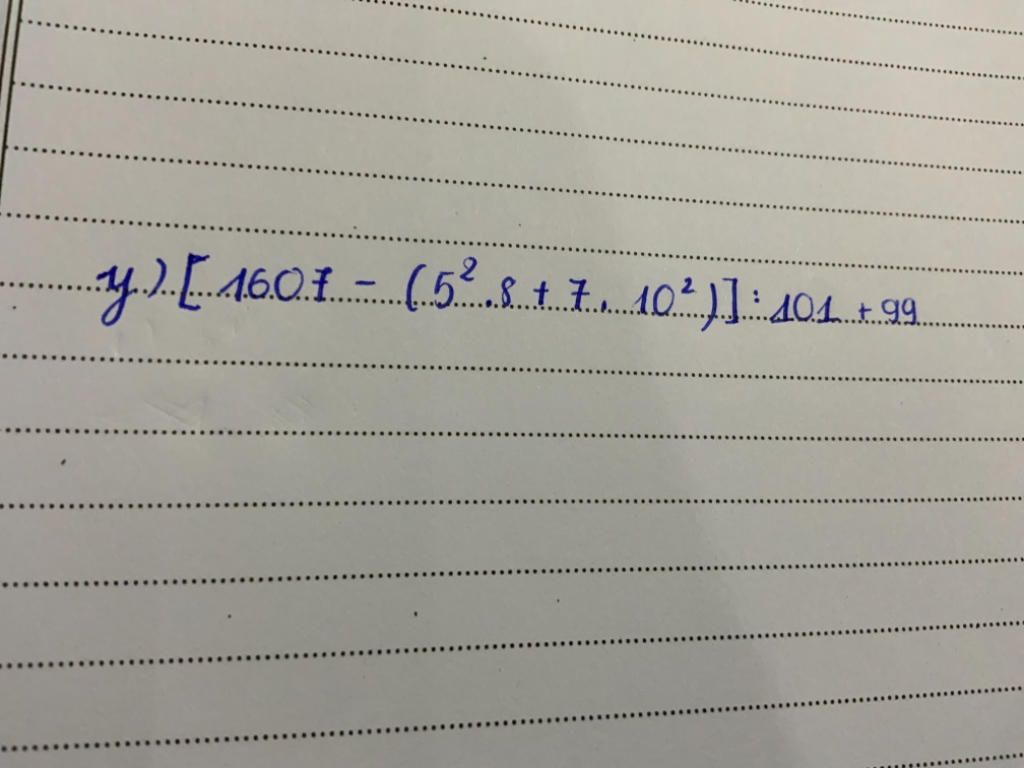 y) [ 1607 - ( 5² . 8 + 7 . 10² ) ] : 101 + 99